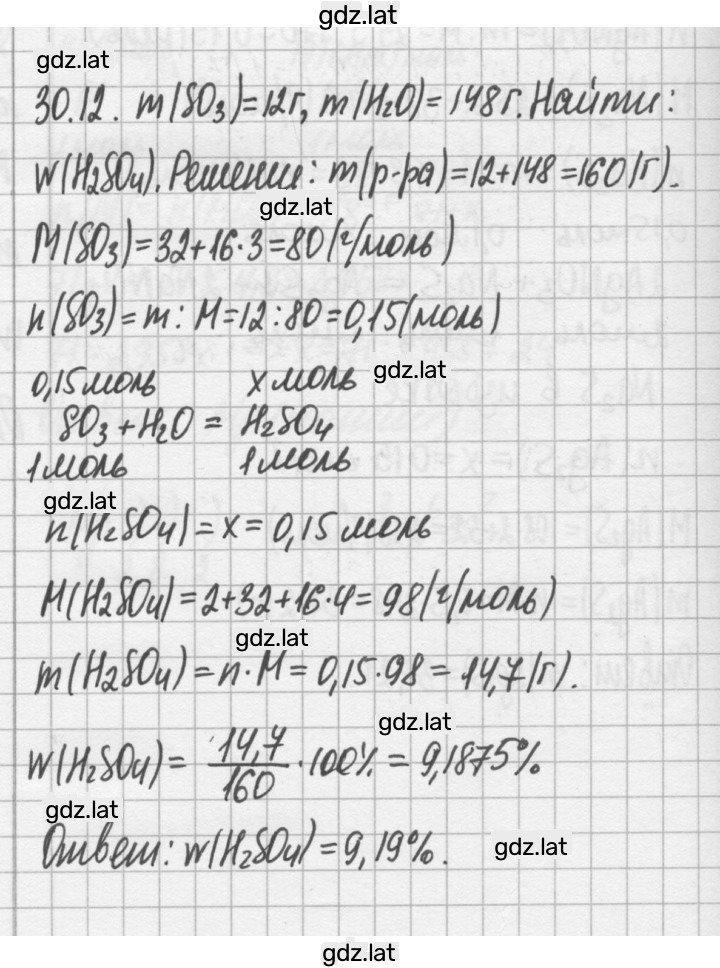 gdz.lat
gdz.lat
30.12. m(SO₃)=12г, m(H₂O)=148г. Найти:
w(H₂SO₄). Решение: m(р-ра)=12+148=160(г).
gdz.lat
M(SO₃)=32+16·3=80(г/моль)
n(SO₃)=m:M=12:80=0,15(моль)
0,15моль x моль gdz.lat
SO₃+H₂O = H₂SO₄
1моль 1моль
gdz.lat
n(H₂SO₄)=x=0,15моль
M(H₂SO₄)=2+32+16·4=98(г/моль)
gdz.lat
m(H₂SO₄)=n·M=0,15·98=14,7(г).
gdz.lat
w(H₂SO₄)= 14,7/160 ·100%=9,1875%
gdz.lat
Ответ: w(H₂SO₄)=9,19%. gdz.lat
gdz.lat